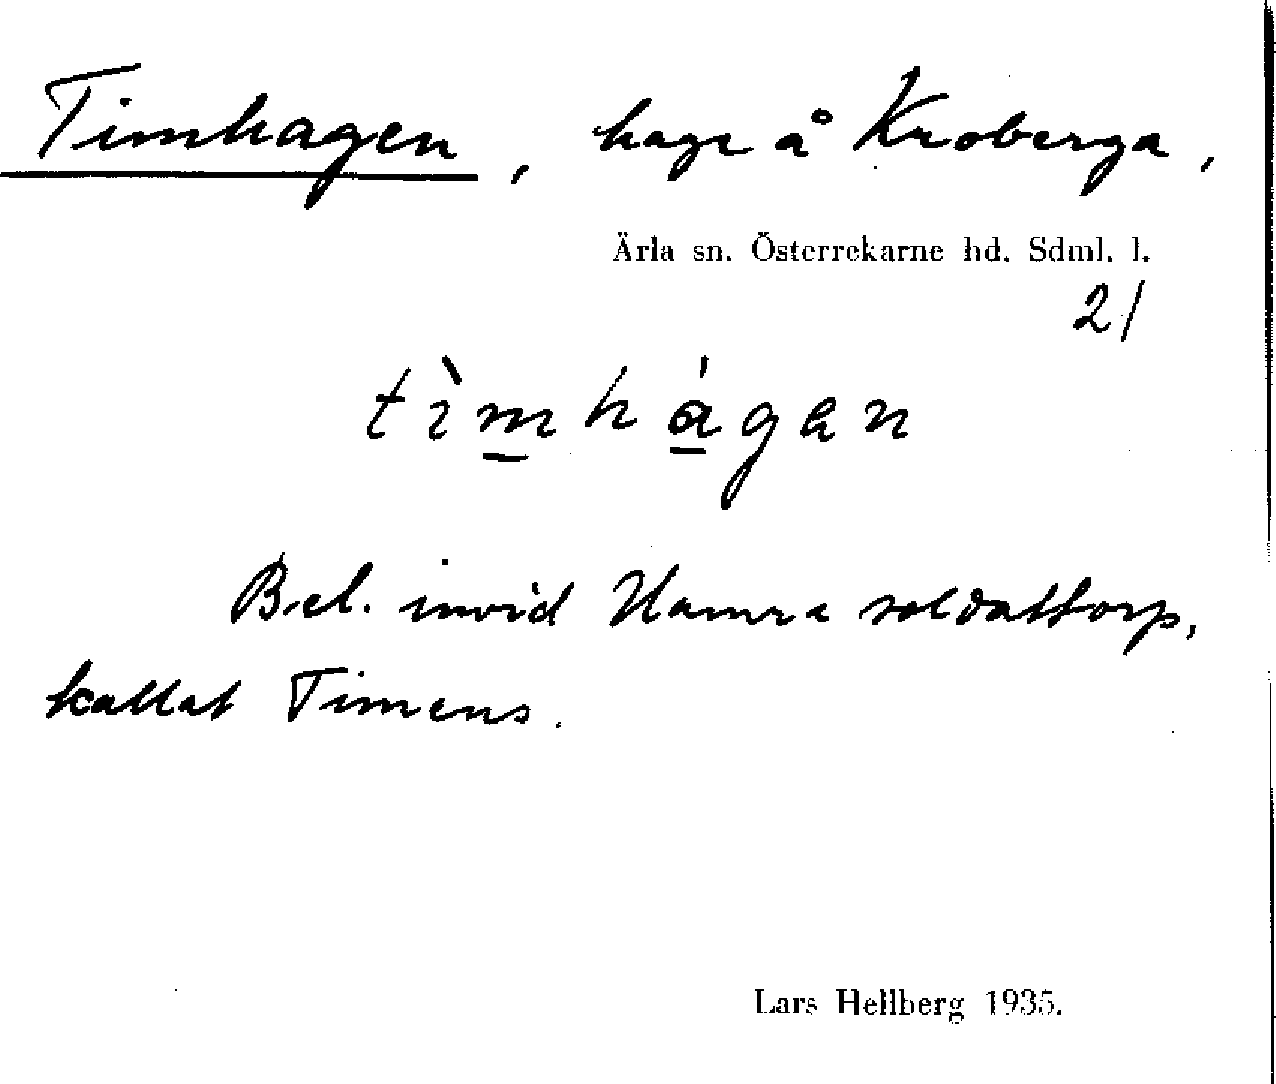 Timhagen, hage å Kroberga,
Ärla sn. Österrekarne hd. Sdml. l.
21
tìmhágan
Bel. invid Hamra soldattorp,
kallat Timens.
Lars Hellberg 1935.